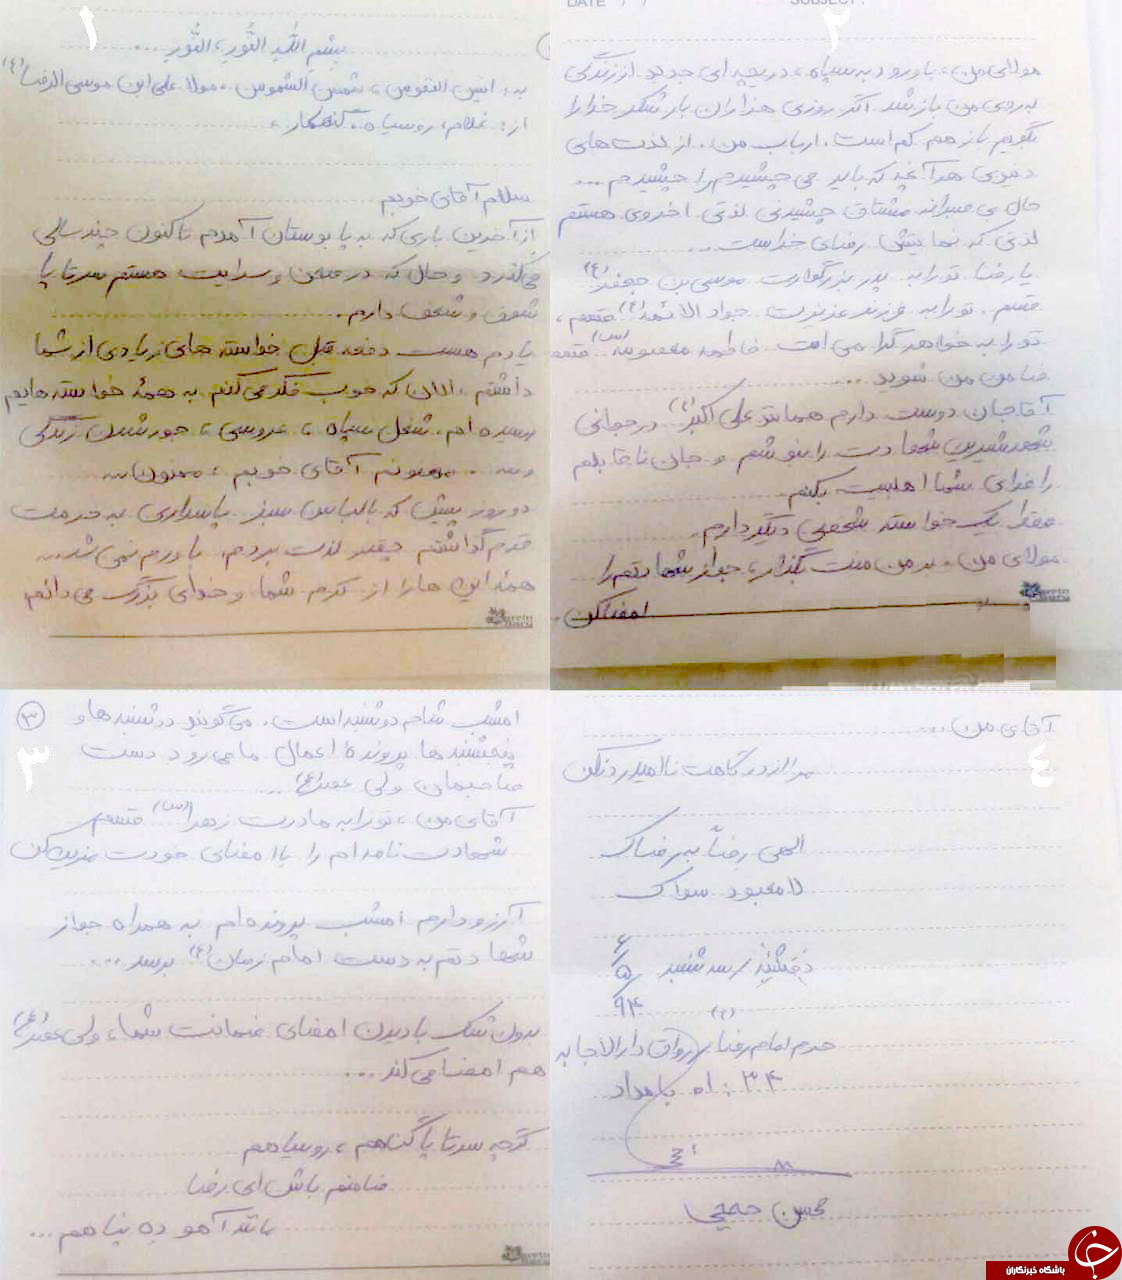 ۱
بسم الله النور، النور...
به: انیس النفوس، شمس الشموس، مولا علی ابن موسی الرضا (ع)
از: غلام، روسیاه، گنهکار،
سلام آقای خوبم
از آخرین باری که به پا بوستان آمدم تا کنون چند سالی
می‌گذرد. و حال که در صحن و سرایت هستم سر تا پا
شوق و شعف دارم...
یادم هست دفعه قبل خواسته های زیادی از شما
داشتم، الان که خوب فکر می کنم به همهٔ خواسته هایم
رسیده ام، شغل سپاه، عروسی، جور شدن زندگی
و... ممنونم آقای خوبم، ممنون...
دو روز پیش که با لباس سبز پاسداری به حرمت
قدم گذاشتم چقدر لذت بردم، باورم نمی شد...
همهٔ این ها را از کرم شما و خدای بزرگ می دانم
DATE / /
SUBJECT:
۲
مولای من، با ورود به سپاه، دریچه ای جدید از زندگی
به روی من باز شد. اگر روزی هزاران بار شکر خدا را
بگویم باز هم کم است. ارباب من، از لذت های
دنیوی هر آنچه که باید می چشیدم را چشیدم...
حال بی صبرانه مشتاق چشیدن لذتی اخروی هستم
لذتی که نهایتش رضای خداست...
یا رضا تو را به پدر بزرگوارت موسی بن جعفر (ع)
قسم، تو را به فرزند عزیزت جواد الائمه (ع) قسم،
تو را به خواهر گرامی ات فاطمه معصومه (س) قسم
ضامن من شوید...
آقا جان دوست دارم همانند علی اکبر (ع) در جوانی
شهد شیرین شهادت را بنوشم و جان ناقابلم
را فدای شما اهلبیت بکنم.
فقط یک خواسته شخصی دیگر دارم.
مولای من، بر من منت بگذار، جواز شهادتم را
امضا کن
۳
امشب شام دوشنبه است. می گویند دوشنبه ها و
پنجشنبه ها پروندهٔ اعمال ما می رود دست
صاحبمان ولی عصر (عج)...
آقای من، تو را به مادرت زهرا (س) قسم
شهادت نامه ام را با امضای خودت مزین کن
آرزو دارم امشب پرونده ام به همراه جواز
شهادتم به دست امام زمان (ع) برسد...
بدون شک با دیدن امضای ضمانت شما، ولی عصر (عج)
هم امضا می کند...
گرچه سر تا پا گناهم، روسیاهم
ضامنم باش ای رضا
مانند آهو بی پناهم...
۴
آقای من...
مرا از درگاهت ناامید نکن
الهی رضاً برضاک
لا معبود سواک
سه شنبه
۶/۵/۹۴
حرم امام رضا (ع) / رواق دارالاجابه
بامداد
محسن حججی
باشگاه خبرنگاران